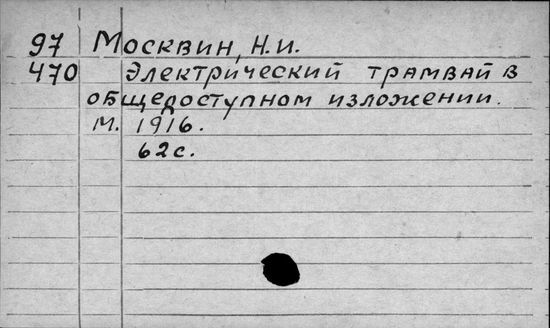 97 Москвин, Н.И.
470 Электрический трамвай в
общедоступном изложении.
М. 1916.
62с.